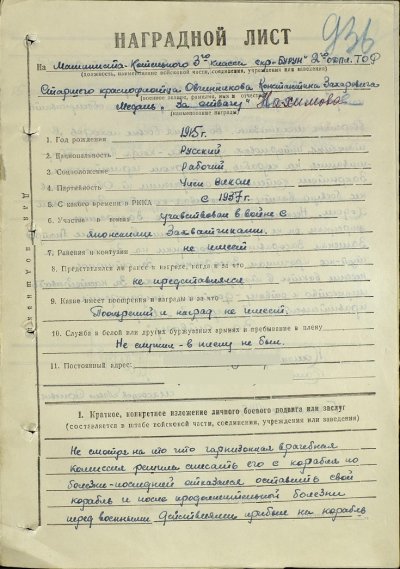 936
НАГРАДНОЙ ЛИСТ
На Машиниста-Котельного 3го класса скр-"Бурун" 2го ТОФ
(должность, наименование войсковой части, соединения, учреждения или заведения)
Старшего краснофлотца Овчинникова Константина Захаровича
(военное звание, фамилия, имя и отчество)
Медаль "За отвагу" Нахимова
(наименование награды)
1. Год рождения 1915г.
2. Национальность Русский
3. Соцположение Рабочий
4. Партийность Член ВЛКСМ
5. С какого времени в РККА с 1937г.
6. Участие в войне участвовал в войне с
японскими Захватчиками.
7. Ранения и контузии не имеет
8. Представлялся ли ранее к награде, когда и за что
не представлялся
9. Какие имеет поощрения и награды и за что
Поощрений и наград не имеет.
10. Служба в белой или других буржуазных армиях и пребывание в плену
Не служил - в плену не был.
11. Постоянный адрес:
I. Краткое, конкретное изложение личного боевого подвига или заслуг
(составляется в штабе войсковой части, соединения, учреждения или заведения)
Не смотря на то что гарнизонная врачебная
комиссия решила списать его с корабля по
болезни-последней отказался оставить свой
корабль и после продолжительной болезни
перед военными действиями прибыл на корабль